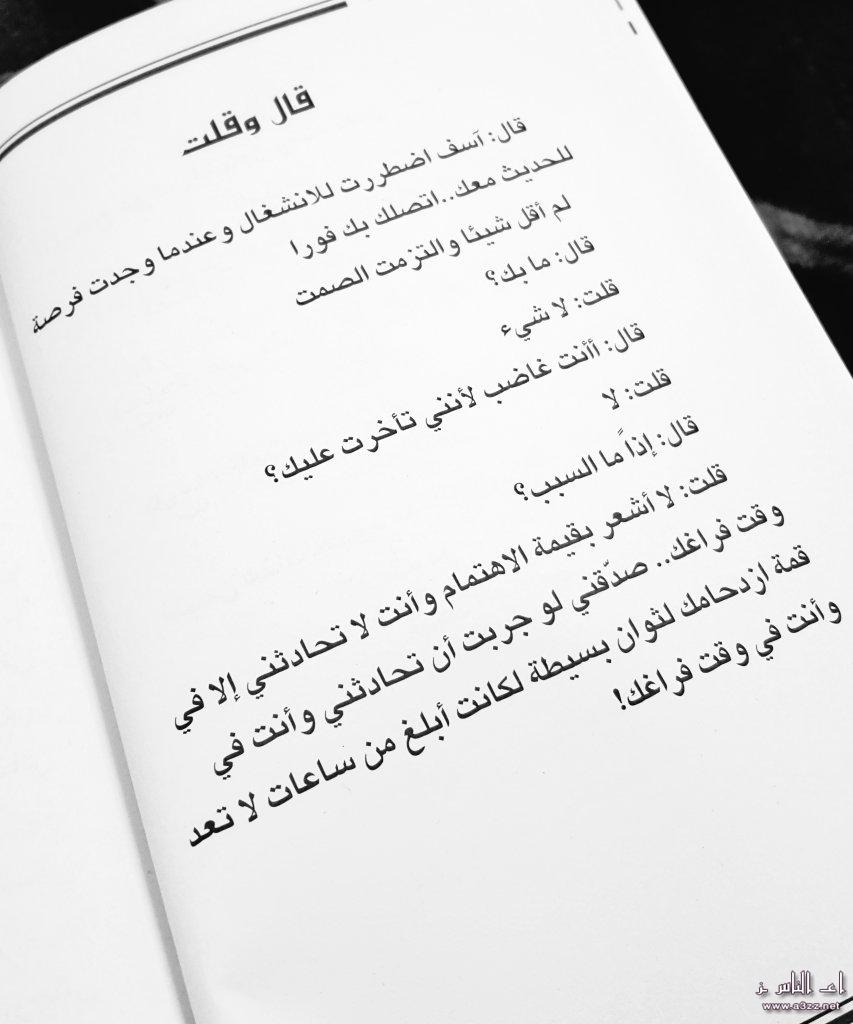 قال وقلت
قال: آسف اضطررت للانشغال وعندما وجدت فرصة
للحديث معك..اتصلك بك فورا
لم أقل شيئا والتزمت الصمت
قال: ما بك؟
قلت: لا شيء
قال: أأنت غاضب لأنني تأخرت عليك؟
قلت: لا
قال: إذاً ما السبب؟
قلت: لا أشعر بقيمة الاهتمام وأنت لا تحادثني إلا في
وقت فراغك.. صدّقني لو جربت أن تحادثني وأنت في
قمة ازدحامك لثوان بسيطة لكانت أبلغ من ساعات لا تعد
وأنت في وقت فراغك!
www.a3zz.net